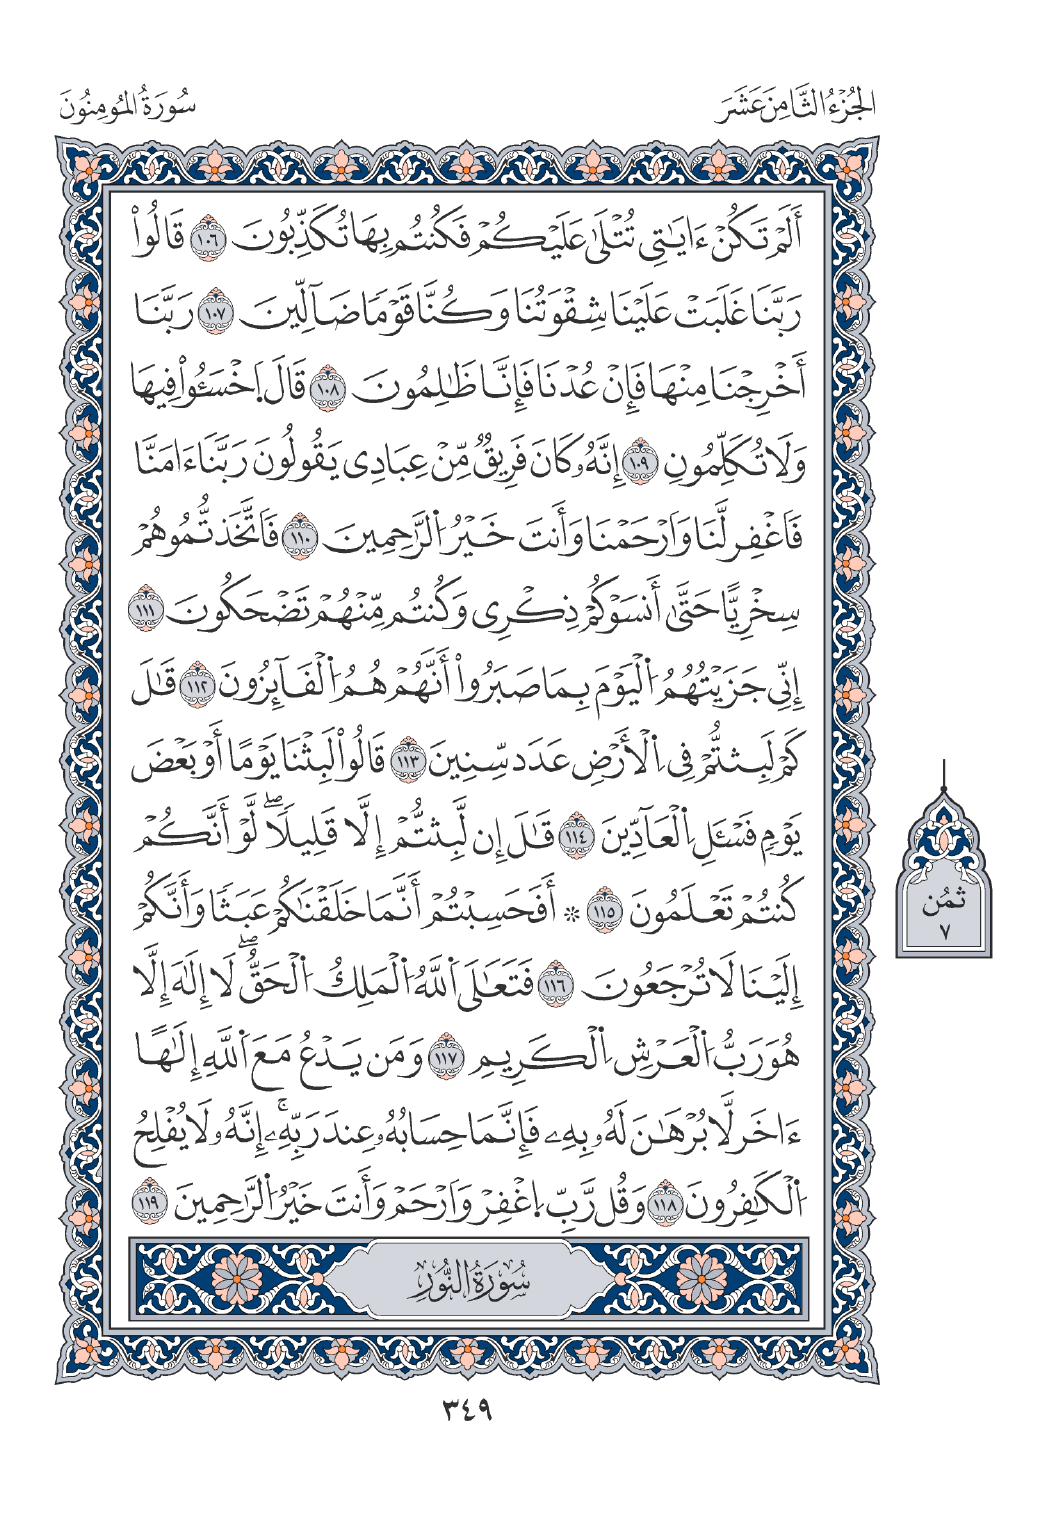 الجُزْءُ الثَّامِنَ عَشَرَ
سُورَةُ المُومِنُونَ
أَلَمْ تَكُنْ ءَايَٰتِى تُتْلَىٰ عَلَيْكُمْ فَكُنتُم بِهَا تُكَذِّبُونَ ١٠٦ قَالُواْ
رَبَّنَا غَلَبَتْ عَلَيْنَا شِقْوَتُنَا وَكُنَّا قَوْمًا ضَآلِّينَ ١٠٧ رَبَّنَا
أَخْرِجْنَا مِنْهَا فَإِنْ عُدْنَا فَإِنَّا ظَٰلِمُونَ ١٠٨ قَالَ اَ۪خْسَـُٔواْ فِيهَا
وَلَا تُكَلِّمُونِ ١٠٩ إِنَّهُۥ كَانَ فَرِيقٌ مِّنْ عِبَادِى يَقُولُونَ رَبَّنَا ءَامَنَّا
فَاَغْفِر لَّنَا وَاَرْحَمْنَا وَأَنتَ خَيْرُ اُ۬لرَّٰحِمِينَ ١١٠ فَاَتَّخَذتُّمُوهُمْ
سِخْرِيًّا حَتَّىٰ أَنسَوْكُمْ ذِكْرِى وَكُنتُم مِّنْهُمْ تَضْحَكُونَ ١١١
إِنِّى جَزَيْتُهُمُ اُ۬لْيَوْمَ بِمَا صَبَرُواْ أَنَّهُمْ هُمُ اُ۬لْفَآئِزُونَ ١١٢ قَٰلَ
كَمْ لَبِثتُّمْ فِى اِ۬لْأَرْضِ عَدَدَ سِّنِينَ ١١٣ قَالُواْ لَبِثْنَا يَوْمًا أَوْ بَعْضَ
يَوْمٍ فَسْـَٔلِ اِ۬لْعَآدِّينَ ١١٤ قَٰلَ إِن لَّبِثتُّمْ إِلَّا قَلِيلًاۖ لَّوْ أَنَّكُمْ
كُنتُمْ تَعْلَمُونَ ١١٥ ۞ أَفَحَسِبْتُمْ أَنَّمَا خَلَقْنَٰكُمْ عَبَثًا وَأَنَّكُمْ
ثمُن
٧
إِلَيْنَا لَا تُرْجَعُونَ ١١٦ فَتَعَٰلَى اَ۬للَّهُ اُ۬لْمَلِكُ اُ۬لْحَقُّۖ لَا إِلَٰهَ إِلَّا
هُوَ رَبُّ اُ۬لْعَرْشِ اِ۬لْكَرِيمِ ١١٧ وَمَن يَدْعُ مَعَ اَ۬للَّهِ إِلَٰهًا
ءَاخَرَ لَا بُرْهَٰنَ لَهُۥ بِهِۦ فَإِنَّمَا حِسَابُهُۥ عِندَ رَبِّهِۦۚ إِنَّهُۥ لَا يُفْلِحُ
اُ۬لْكَٰفِرُونَ ١١٨ وَقُل رَّبِّ اِ۪غْفِرْ وَاَرْحَمْ وَأَنتَ خَيْرُ اُ۬لرَّٰحِمِينَ ١١٩
سُورَةُ النُّورِ
٣٤٩